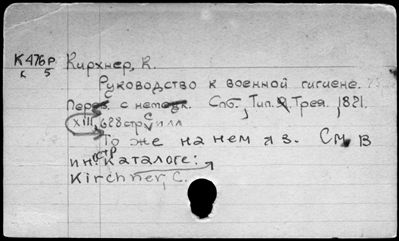 К476р Кирхнер, К.
к 5
Руководство к военной гигиене.
Перев. с немецк. Спб., Тип. Я. Трея, 1821.
XIII, 628 стр. с илл
То же на нем яз. См. в
иностр каталоге:
Kirchner, C.